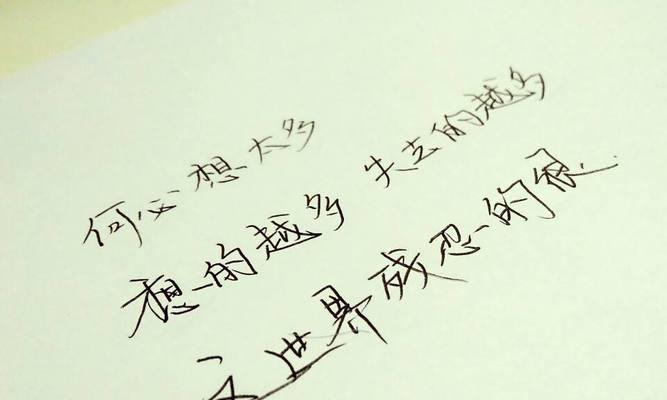 何必想太多
想的越多 失去的越多
这世界残忍的很.